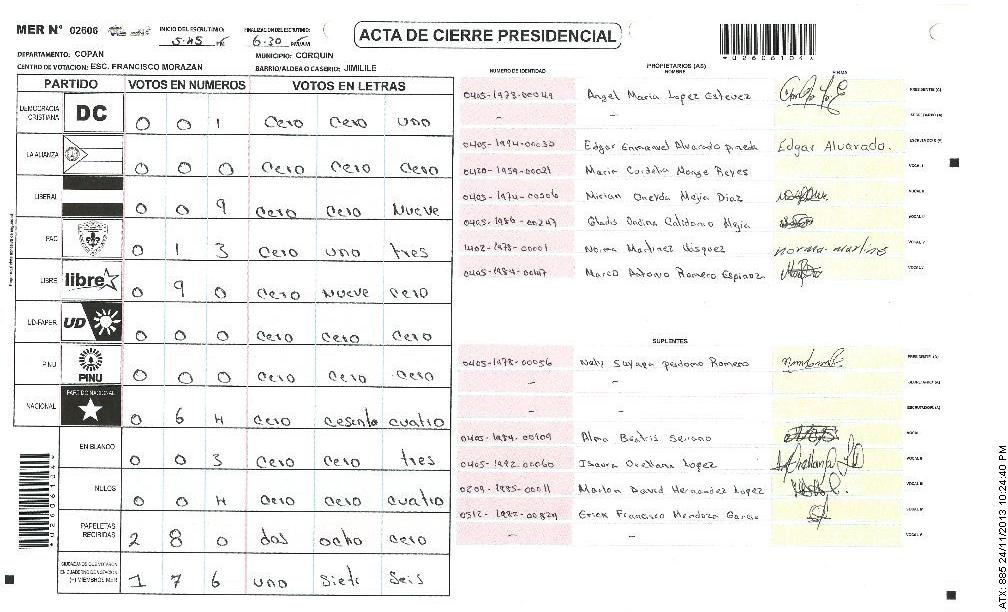 MER N° 02606
INICIO DEL ESCRUTINIO: 5:45 PM
FINALIZACION DEL ESCRUTINIO: 6:30 PM/AM
ACTA DE CIERRE PRESIDENCIAL
*02606104*
DEPARTAMENTO: COPAN
MUNICIPIO: CORQUIN
CENTRO DE VOTACION: ESC. FRANCISCO MORAZAN
BARRIO/ALDEA O CASERIO: JIMILILE
PARTIDO VOTOS EN NUMEROS VOTOS EN LETRAS
DEMOCRACIA CRISTIANA DC 0 0 1 Cero Cero uno
LA ALIANZA 0 0 0 Cero Cero Cero
LIBERAL 0 0 9 Cero Cero Nueve
PAC 0 1 3 Cero uno tres
LIBRE libre 0 9 0 Cero Nueve Cero
UD-FAPER UD 0 0 0 Cero Cero Cero
PINU PINU 0 0 0 Cero Cero Cero
NACIONAL PARTIDO NACIONAL 0 6 4 Cero Cesenta cuatro
EN BLANCO 0 0 3 Cero Cero tres
NULOS 0 0 4 Cero Cero cuatro
PAPELETAS RECIBIDAS 2 8 0 dos ocho cero
CIUDADANOS QUE VOTARON EN CUADERNO DE VOTACION (+) MIEMBROS MER 1 7 6 uno Siete Seis
PROPIETARIOS (AS)
NUMERO DE IDENTIDAD NOMBRE FIRMA
0405-1973-00049 Angel Maria Lopez Estevez PRESIDENTE (A)
- - SECRETARIO (A)
0405-1994-00030 Edgar Enmanuel Alvarado pineda Edgar Alvarado. ESCRUTADOR (A)
0420-1959-00021 Maria Cordelia Monge Reyes VOCAL I
0405-1974-00306 Mirian Oneyda Mejia Diaz VOCAL II
0405-1986-00247 Gladis Ondina Calidonio Mejia VOCAL III
1402-1978-00001 Norma Martinez Vasquez norma martines VOCAL IV
0405-1984-00167 Marco Antonio Romero Espinoza VOCAL V
SUPLENTES
0405-1978-00056 Nely Suyapa perdomo Romero PRESIDENTE (A)
- - SECRETARIO (A)
- - ESCRUTADOR (A)
0405-1984-00109 Alma Beatris Serrano VOCAL I
0405-1992-00060 Isaura Orellana Lopez VOCAL II
0209-1985-00011 Marlon David Hernandez Lopez VOCAL III
0312-1982-00329 Erick Francisco Mendoza Garcia VOCAL IV
- - VOCAL V
*02606104*
ATX: 885 24/11/2013 10:24:40 PM